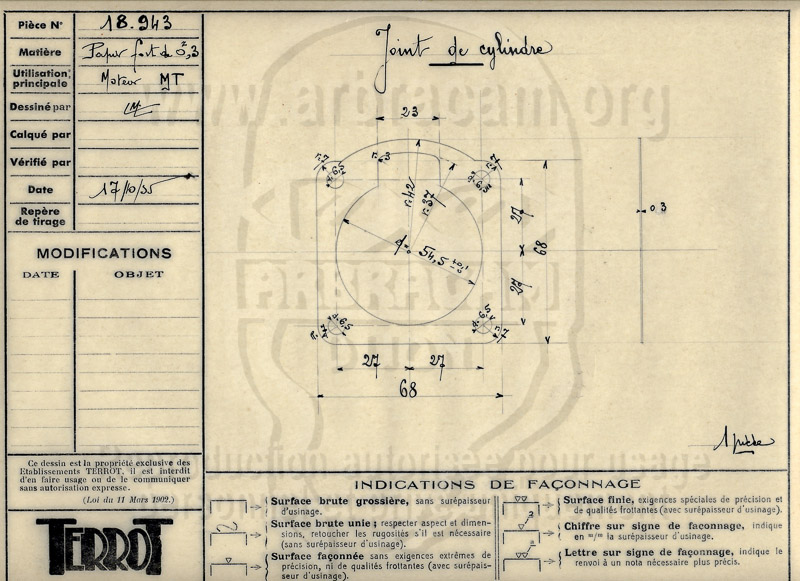 Pièce N° 18.943
Matière Papier fort de 0,3
Utilisation principale Moteur MT
Dessiné par
Calqué par
Vérifié par
Date 17/10/35
Repère de tirage
MODIFICATIONS
DATE OBJET
Ce dessin est la propriété exclusive des
Etablissements TERROT, il est interdit
d'en faire usage ou de le communiquer
sans autorisation expresse.
(Loi du 11 Mars 1902.)
TERROT
Joint de cylindre
www.arbracam.org
23
r.7
r.3
r.7
d.6,5
d.6,5
r.42
r.37
27
68
0.3
d. 54,5
ARBRACAM
27
d.6,5
d.6,5
r.7
r.7
27 27
68
1 pièce
Reproduction autorisée pour usage
INDICATIONS DE FAÇONNAGE
Surface brute grossière, sans surépaisseur
d'usinage.
Surface brute unie ; respecter aspect et dimen-
sions, retoucher les rugosités s'il est nécessaire
(sans surépaisseur d'usinage).
Surface façonnée sans exigences extrêmes de
précision, ni de qualités frottantes (avec surépais-
seur d'usinage).
Surface finie, exigences spéciales de précision et
de qualités frottantes (avec surépaisseur d'usinage).
3
Chiffre sur signe de faconnage, indique
en m/m la surépaisseur d'usinage.
a
Lettre sur signe de façonnage, indique le
renvoi à un nota nécessaire plus précis.